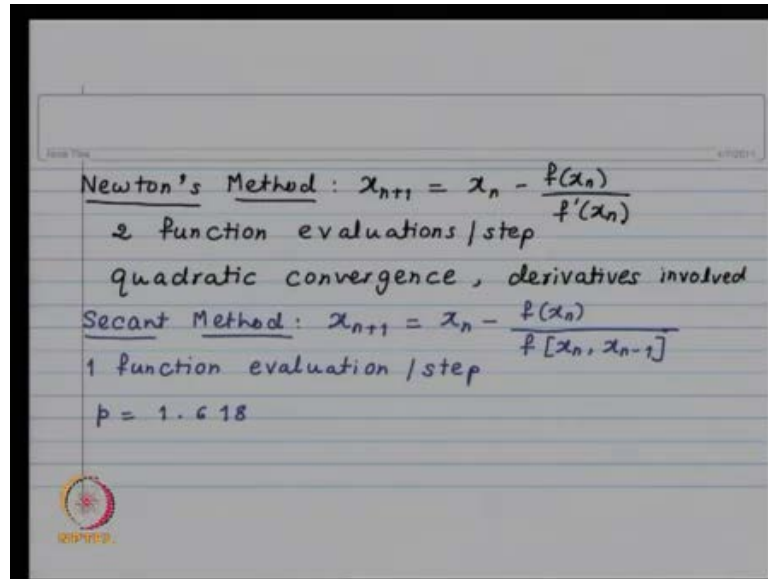 Newton's Method : xₙ₊₁ = xₙ - f(xₙ) / f'(xₙ)
2 function evaluations / step
quadratic convergence, derivatives involved
Secant Method : xₙ₊₁ = xₙ - f(xₙ) / f[xₙ, xₙ₋₁]
1 function evaluation / step
p = 1.618
NPTEL